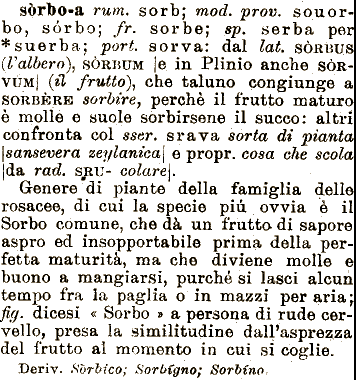 sòrbo-a rum. sorb; mod. prov. souor-
bo, sórbo; fr. sorbe; sp. serba per
*suerba; port. sorva: dal lat. SÒRBUS
(l'albero), SÒRBUM [e in Plinio anche SÒR-
VUM] (il frutto), che taluno congiunge a
SORBÈRE sorbire, perchè il frutto maturo
è molle e suole sorbirsene il succo: altri
confronta col sscr. srava sorta di pianta
[sansevera zeylanica] e propr. cosa che scola
[da rad. SRU- colare].
Genere di piante della famiglia delle
rosacee, di cui la specie piú ovvia è il
Sorbo comune, che dà un frutto di sapore
aspro ed insopportabile prima della per-
fetta maturità, ma che diviene molle e
buono a mangiarsi, purché si lasci alcun
tempo fra la paglia o in mazzi per aria;
fig. dicesi « Sorbo » a persona di rude cer-
vello, presa la similitudine dall'asprezza
del frutto al momento in cui si coglie.
Deriv. Sòrbico; Sorbígno; Sorbíno.